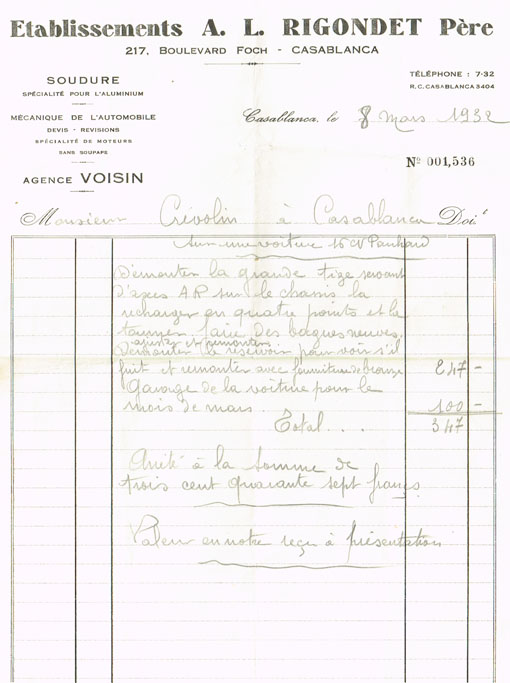 Etablissements A. L. RIGONDET Père
217, BOULEVARD FOCH - CASABLANCA
SOUDURE
SPÉCIALITÉ POUR L'ALUMINIUM
MÉCANIQUE DE L'AUTOMOBILE
DEVIS - REVISIONS
SPÉCIALITÉ DE MOTEURS
SANS SOUPAPE
AGENCE VOISIN
TÉLÉPHONE : 7-32
R. C. CASABLANCA 3404
Casablanca, le 8 mars 1932
No 001,536
Monsieur Crévolin à Casablanca Doit
Sur une voiture 16 CV Panhard
Démonter la grande tige servant
d'axes AR sur le chassis la
recharger en quatre points et la
tourner faire des bagues neuves,
ajuster et remonter
Démonter le réservoir pour voir s'il
fuit et remonter avec fourniture de bronze 247 -
Garage de la voiture pour le
mois de mars. 100 -
Total . . . 347
Arrêté à la somme de
trois cent quarante sept francs
Valeur en notre reçu à présentation